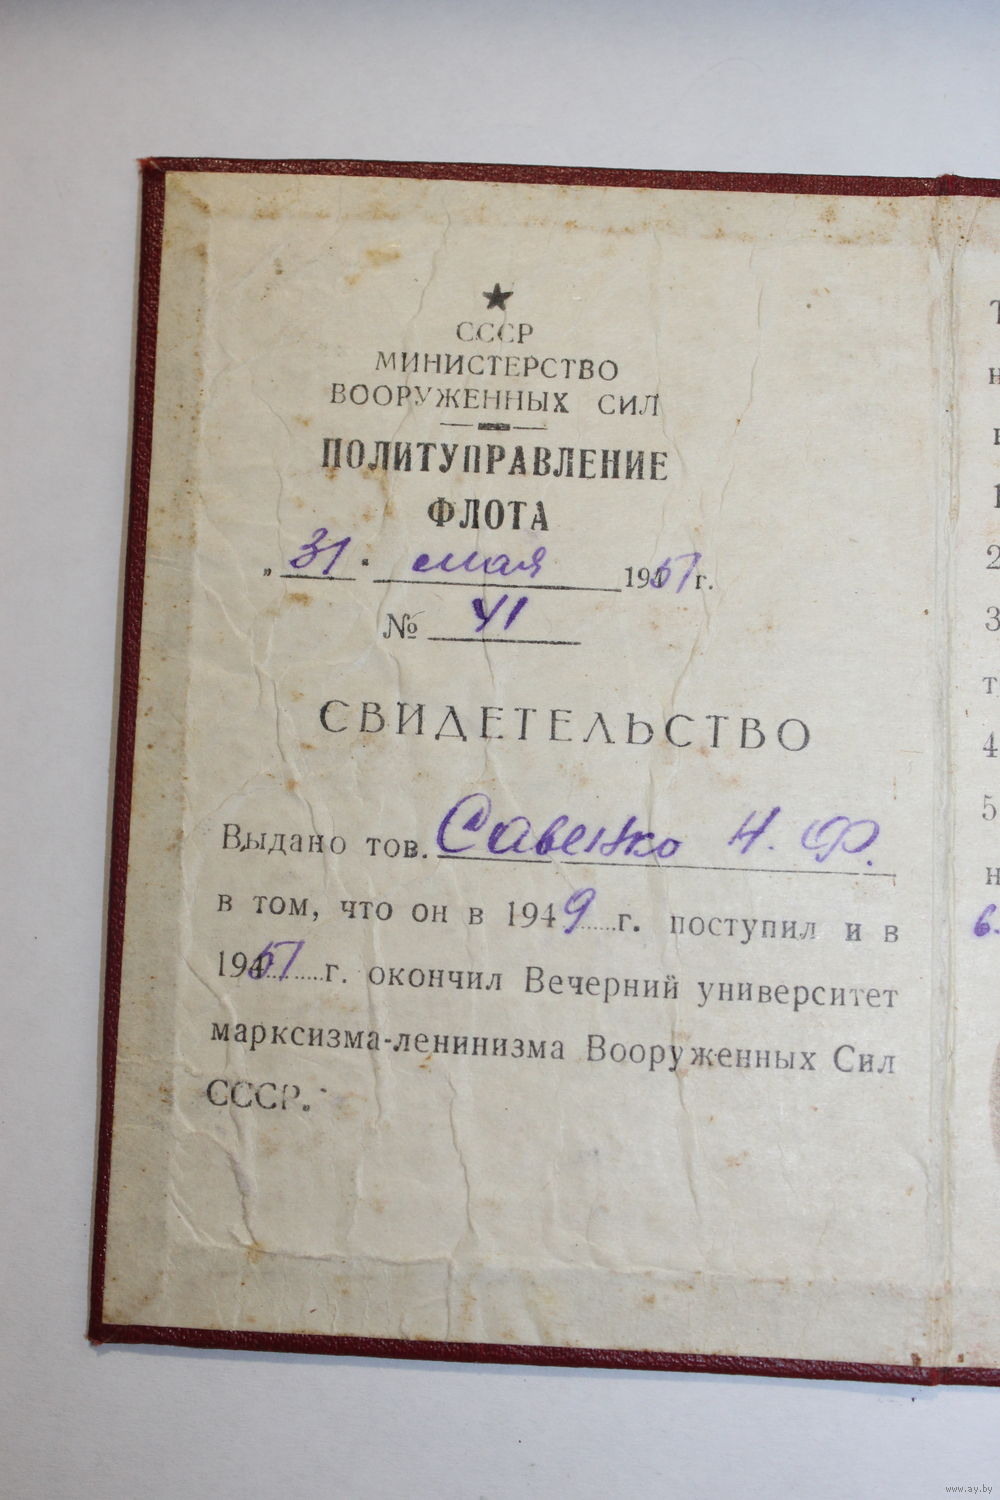 ★
СССР
МИНИСТЕРСТВО
ВООРУЖЕННЫХ СИЛ
ПОЛИТУПРАВЛЕНИЕ
ФЛОТА
„31" мая 1951 г.
№ 41
СВИДЕТЕЛЬСТВО
Выдано тов. Савенко Н. Ф.
в том, что он в 1949 г. поступил и в
1951 г. окончил Вечерний университет
марксизма-ленинизма Вооруженных Сил
СССР.
2
3
т
4
5
н
6.
www.ay.by